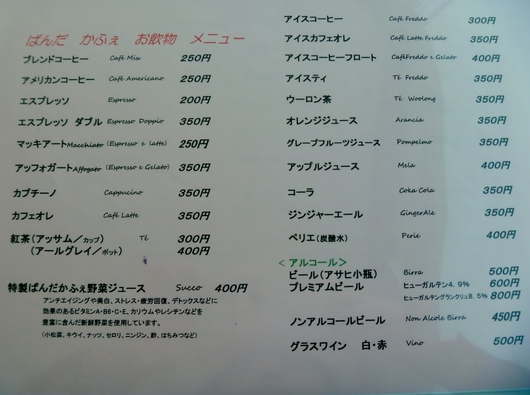 ぱんだ かふぇ お飲物 メニュー
ブレンドコーヒー Café Mix 250円
アメリカンコーヒー Café Americano 250円
エスプレッソ Espresso 200円
エスプレッソ ダブル Espresso Doppio 350円
マッキアートMacchiato (Espresso e latte) 250円
アッフォガートAffogato (Espresso e Gelato) 350円
カプチーノ Cappucino 350円
カフェオレ Café Latte 350円
紅茶(アッサム/カップ) Té 300円
(アールグレイ/ポット) 400円
特製ぱんだかふぇ野菜ジュース Succo 400円
アンチエイジングや美白、ストレス・疲労回復、デトックスなどに
効果のあるビタミンA・B6・C・E、カリウムやレシチンなどを
豊富に含んだ新鮮野菜を使用しています。
(小松菜、キウイ、ナッツ、セロリ、ニンジン、酢、はちみつなど)
アイスコーヒー Café Freddo 300円
アイスカフェオレ Café Latte Freddo 350円
アイスコーヒーフロート CaféFreddo e Gelato 400円
アイスティ Té Freddo 350円
ウーロン茶 Té Woolong 350円
オレンジジュース Arancia 350円
グレープフルーツジュース Pompelmo 350円
アップルジュース Mela 400円
コーラ Coka Cola 350円
ジンジャーエール GingerAle 350円
ペリエ(炭酸水) Perie 400円
<アルコール>
ビール(アサヒ小瓶) Birra 500円
プレミアムビール ヒューガルデン4.9% 600円
ヒューガルデングランクリュ8.5% 800円
ノンアルコールビール Non Alcole Birra 450円
グラスワイン 白・赤 Vino 500円